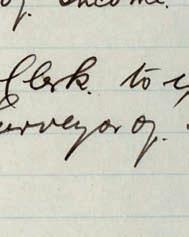 of income.
Clerk. to
Surveyor of